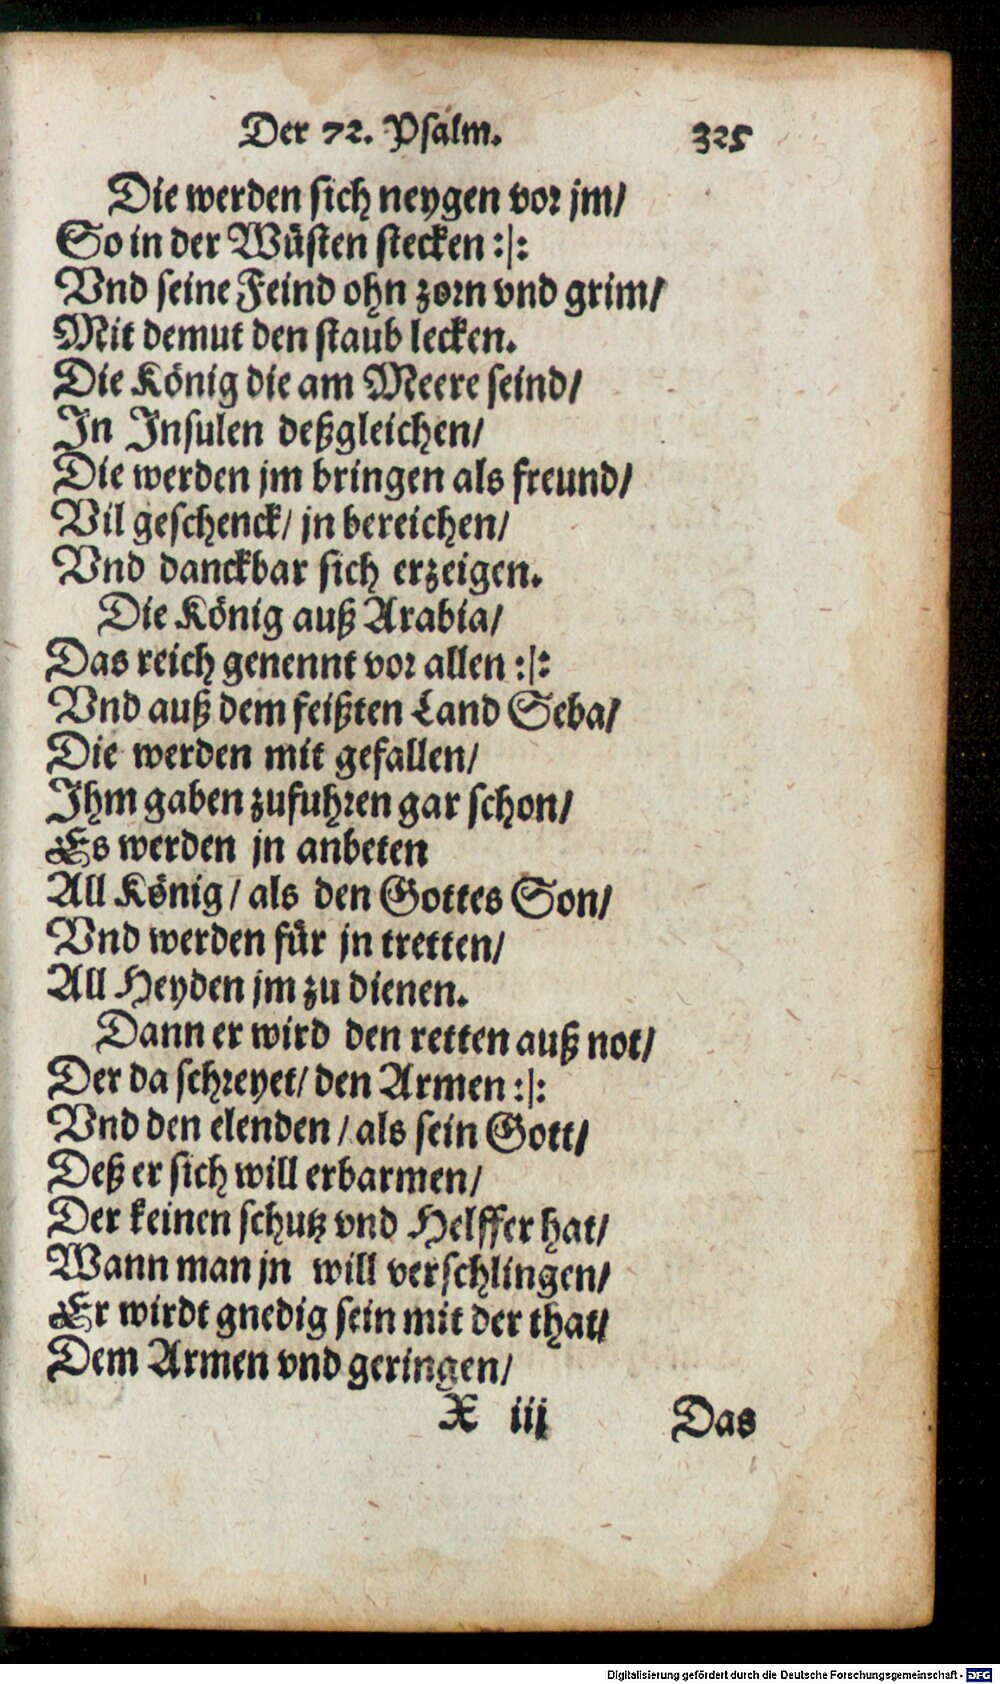 Der 72. Psalm. 325
Die werden sich neygen vor jm/
So in der Wüsten stecken :|:
Vnd seine Feind ohn zorn vnd grim/
Mit demut den staub lecken.
Die König die am Meere seind/
In Insulen deßgleichen/
Die werden jm bringen als freund/
Vil geschenck/ jn bereichen/
Vnd danckbar sich erzeigen.
Die König auß Arabia/
Das reich genennt vor allen :|:
Vnd auß dem feißten Land Seba/
Die werden mit gefallen/
Ihm gaben zufuhren gar schon/
Es werden jn anbeten
All König / als den Gottes Son/
Vnd werden für jn tretten/
All Heyden jm zu dienen.
Dann er wird den retten auß not/
Der da schreyet/ den Armen :|:
Vnd den elenden / als sein Gott/
Deß er sich will erbarmen/
Der keinen schutz vnd Helffer hat/
Wann man jn will verschlingen/
Er wirdt gnedig sein mit der that/
Dem Armen vnd geringen/
X iij Das
Digitalisierung gefördert durch die Deutsche Forschungsgemeinschaft - DFG